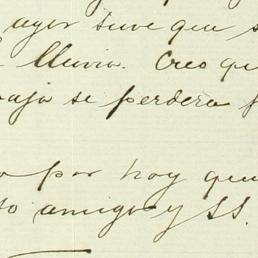 ayer tuve que s
lluvia. Creo qu
paja se perdera f
por hoy que
amigo y SS.